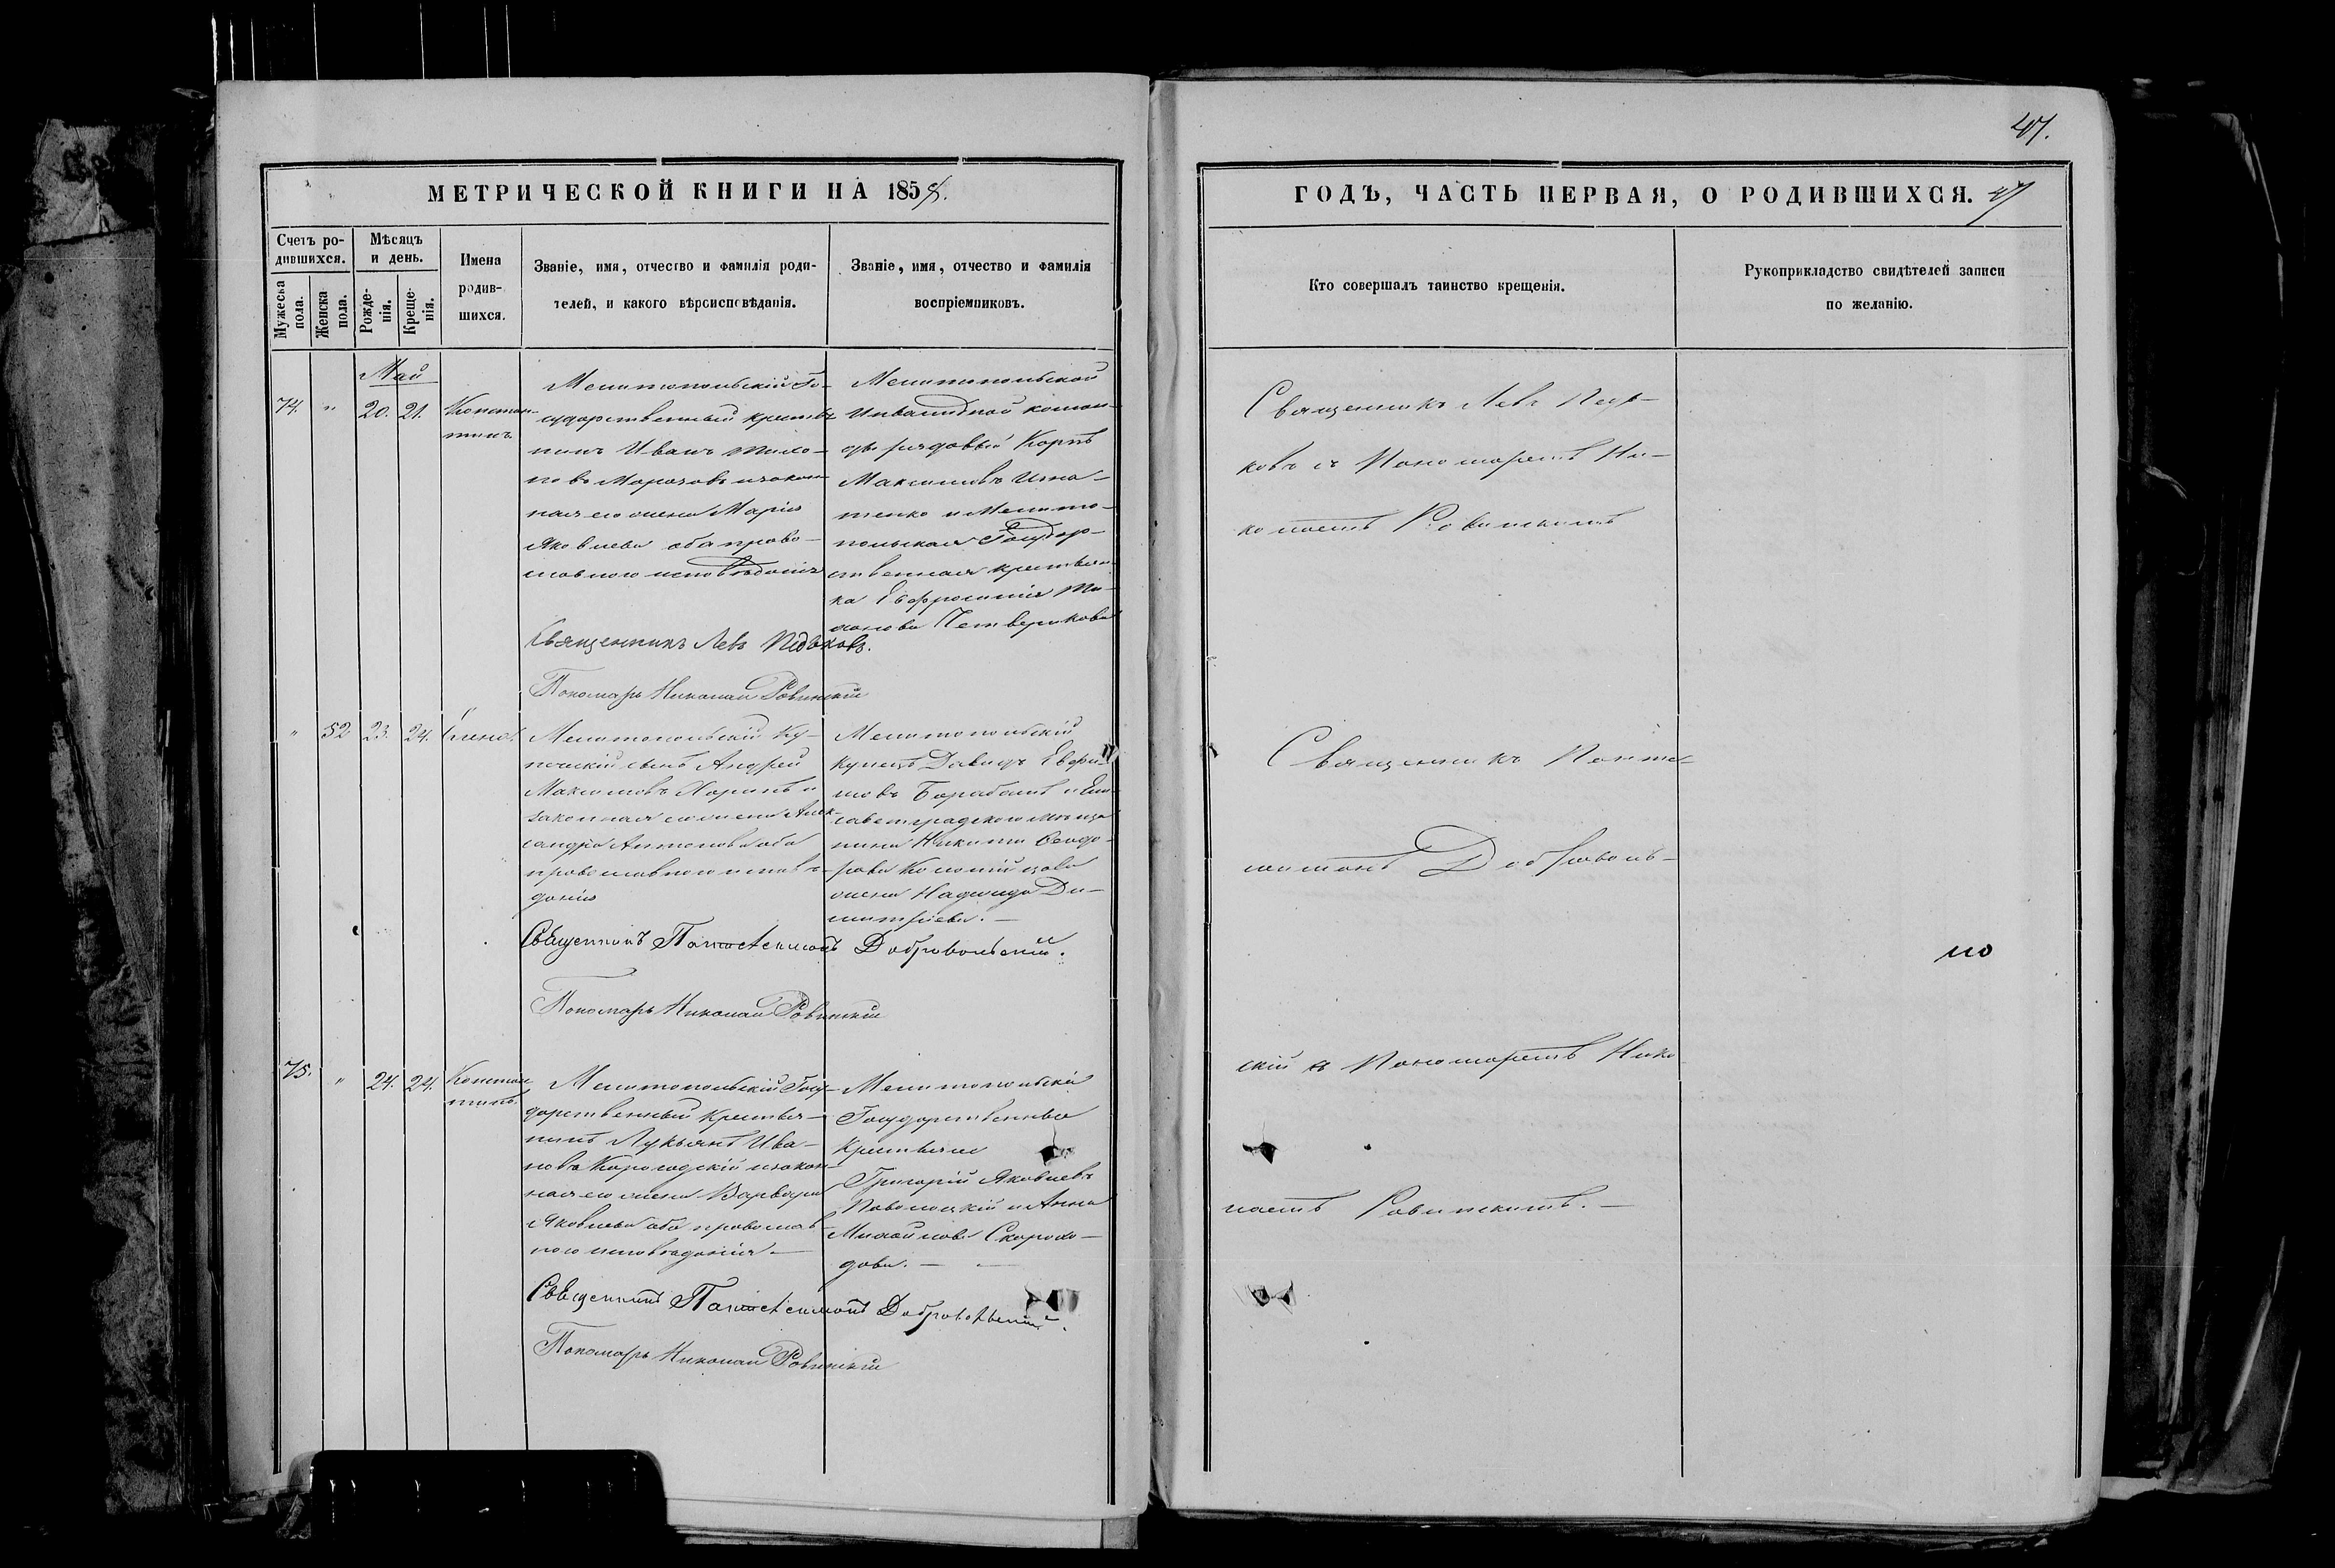 47.
МЕТРИЧЕСКОЙ КНИГИ НА 1858.
Счетъ ро-
дившихся.
Мѣсяцъ
и день.
Мужеска
пола.
Женска
пола.
Рожде-
нія.
Креще-
нія.
Имена
родив-
шихся.
Званіе, имя, отчество и фамилія роди-
телей, и какого вѣроисповѣданія.
Званіе, имя, отчество и фамилія
воспріемниковъ.
Май
74. " 20. 21. Констан-
тинъ
Мелитопольскій Го-
сударственный крестья
нинъ Иванъ Тихо-
новъ Морозовъ изакон
ная его жена Марія
Яковлева оба право-
славного исповѣданія
Мелитопольской
Инвалидной коман-
ды рядовый Карпъ
Максимовъ Игна-
тенко и Мелито-
польская Государ-
ственная крестьян-
ка Евфросинія Ти-
хонова Четверикова
Священникъ Левъ Педьковъ.
Пономарь Николай Ровинскій
" 52 23. 24. Елена.
Мелитопольскій Ку-
печескій сынъ Андрей
Максимовъ Харинъ и
законная его жена Алек-
сандра Антонова оба
православного исповѣ-
данія
Мелитопольскій
купецъ Давидъ Ефи-
мовъ Барабашъ и Ели-
саветградского мѣща
нина Никиты Ѳеодо-
рова
жена Надежда Ди-
митріева. —
Священникъ Пантелеимонъ Добровольскій.
Пономарь Николай Ровинскій
75. " 24. 24. Констан
тинъ.
Мелитопольскій Госу-
дарственный крестья-
нинъ Лукьянъ Ива-
новъ Кородскій изакон-
ная его жена Варвара
Яковлева оба православ-
ного исповѣданія —
Мелитопольскіе
Государственные
крестьяне
Григорій Яковлевъ
Поволоцкій и Анна
Михайлова Скорохо-
дова. —
Священникъ Пантелеимонъ Добровольскій.
Пономарь Николай Ровинскій
ГОДЪ, ЧАСТЬ ПЕРВАЯ, О РОДИВШИХСЯ. 47
Кто совершалъ таинство крещенія.
Рукоприкладство свидѣтелей записи
по желанію.
Священникъ Левъ Педь-
ковъ съ Пономаремъ Ни-
колаемъ Ровинскимъ
Священникъ Панте-
леимонъ Доброволь-
по
скій съ Пономаремъ Нико
лаемъ Ровинскимъ. —